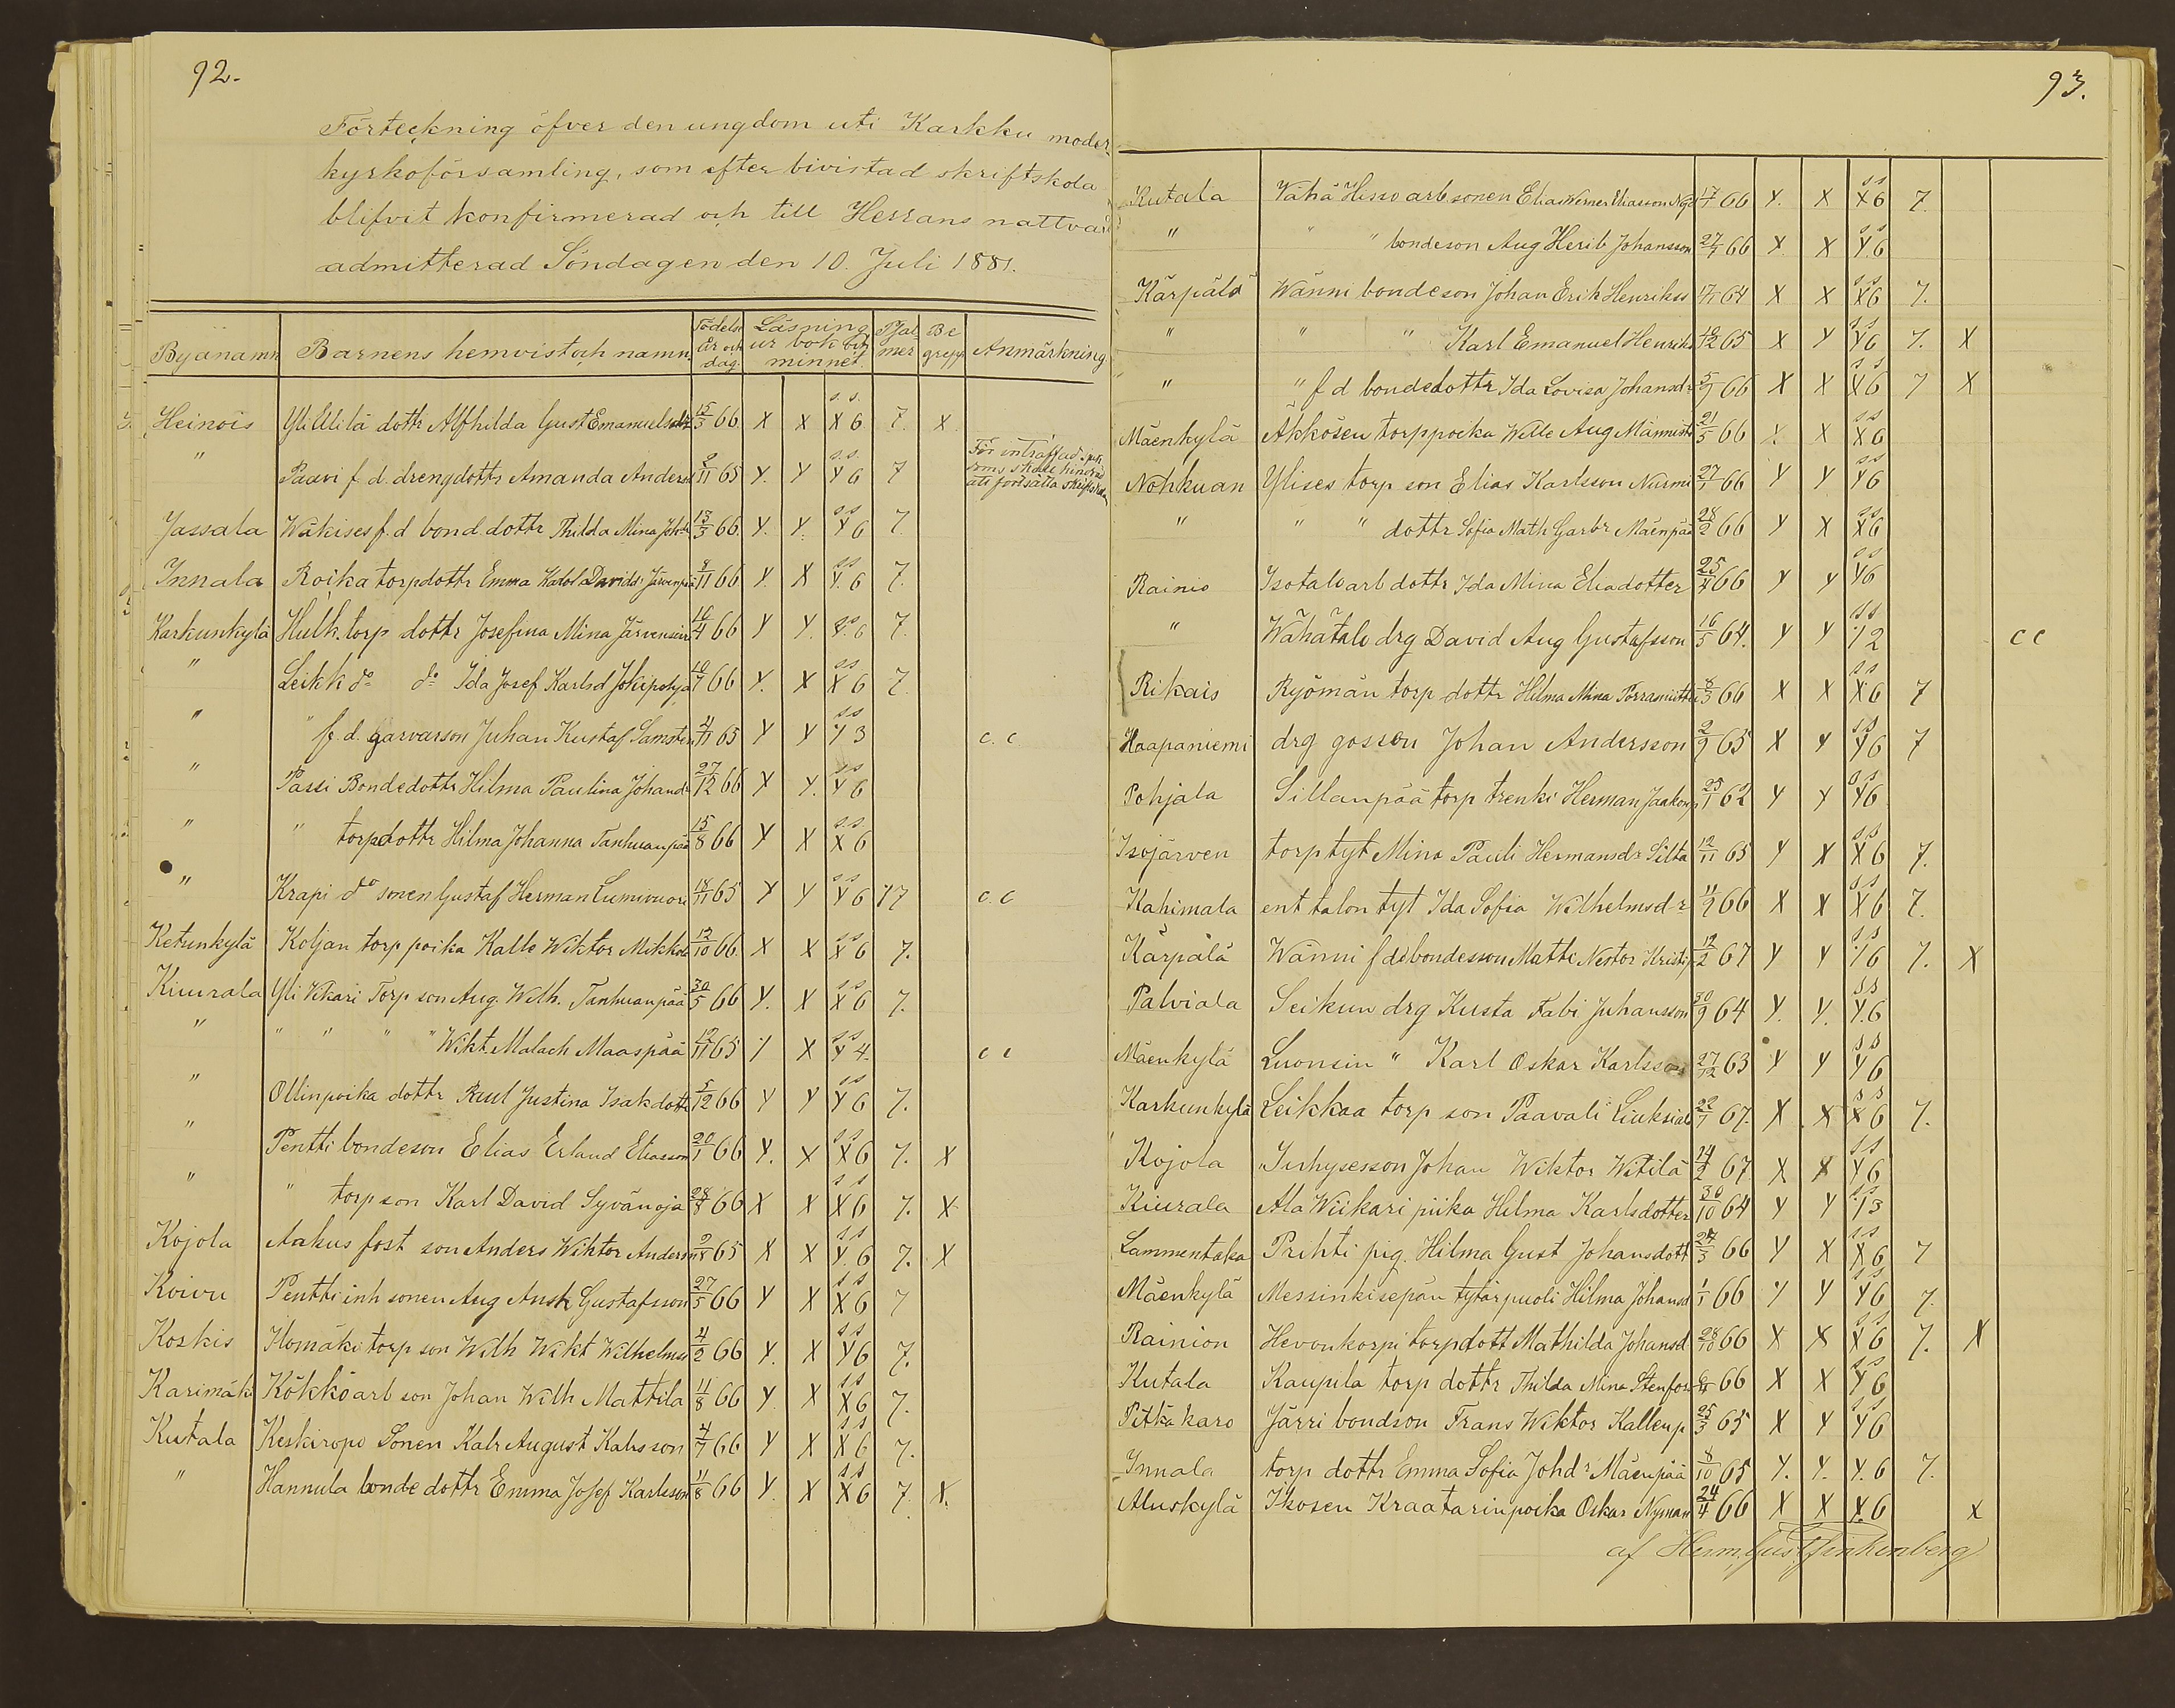 92.
Förteckning öfver den ungdom uti Karkku moder
kyrkoförsamling, som efter bivistad skriftskola
blifvit konfirmerad och till Herrans nattvard
admitterad Söndagen den 10. Juli 1881.
Byanamn Barnens hemvist och namn. Födelse år och dag. Läsning ur bok och minnet. Psalmer Begrepp Anmärkning
Heinois Yli Ulilä dottr Alfhilda Gust Emanuelsdr 15/3 66 X X s.s. X 6 7. X
" Paavi f. d. drengdottr Amanda Anders 2/11 65 Y. Y s.s. Y 6 7 För inträffad
Jassala Wäkises f. d bond. dottr Thilda Mina Joh.dr 13/3 66. Y. Y. ss Y 6 7.
Innala Roika torpdottr Emma Karol Davidsdr Järvenpää 8/11 66 Y. X ss Y. 6 7.
Karkunkylä Hulk. torp dottr Josefina Mina Järvensivu 16/4 66 Y Y. ss Y. 6 7.
" Leikk do do Ida Josef Karlsd Jokipohja 10/7 66 Y. X ss X 6 7.
" " f. d. garvarson Juhan Kustaf Samsten 4/11 65 Y Y ss Y 3 c. c
" Passi Bondedottr Hilma Paulina Johansd 27/12 66 Y Y. ss Y 6
" " torpdottr Hilma Johanna Tanhuanpää 15/8 66 Y X s.s. X 6
" Krapi do sonen Gustaf Herman Lumivuori 18/11 65 Y Y ss Y 6 7 c. c
Ketunkylä Koljan torp poika Kalle Wiktor Mikkola 12/10 66. X X ss X 6 7.
Kiurala Yli Vikari Torp son Aug. Wilh. Tanhuanpää 30/5 66 Y. X ss X 6 7.
" " " " " Wikt. Malach Maaspää 12/11 65 Y X ss Y 4. c c
" Ollinpoika dottr Ruul Justina Isakdottr 5/12 66 Y Y ss Y 6 7.
" Pentti bondeson Elias Erland Eliasson 20/1 66 Y. X ss X 6 7. X
" " torpson Karl David Syvänoja 28/8 66 X X ss X 6 7. X
Kojola Aakus fost son Anders Wiktor Anderss 9/8 65 X X ss Y. 6 7. X
Koivu Pentti inh sonen Aug Ansh Gustafsson 27/5 66 Y X ss X 6 7
Koskis Ilomäki torp son Wilh Wikt Wilhelmss 4/2 66 Y. X ss Y 6 7.
Karimäki Kökkö arb son Johan Wilh Mattila 11/8 66 Y X ss X 6 7.
Kutala Keskiropo Sonen Kalr August Kalrsson 4/7 66 Y X ss X 6 7.
" Hannula bonde dottr Emma Josef Karlsson 11/8 66 Y. X ss X 6 7. X.
93.
Kutala Vähä Hiswo arb sonen Elias Werner Eliasson 17/7 66 Y. X ss X 6 7.
" " " bondeson Aug Herib Johansson 27/7 66 X X ss Y. 6
Kärpälä Wänni bondeson Johan Erik Henrikss 17/1 64 X X ss X 6 7.
" " " Karl Emanuel Henriks 10/12 65 X Y ss Y 6 7. X
" " f d bondedottr Ida Lovisa Johansdr 5/9 66 X X ss X 6 7 X
Mäenkylä Äkkösen torppoika Wille Aug Männistö 21/5 66 X X ss X 6
Nohkuan Ylises torp son Elias Karlsson Nurmi 27/1 66 Y Y ss Y 6
" " " dottr Sofia Math Gasbr Mäenpää 28/2 66 Y X ss X 6
Rainio Isotalo arb dottr Ida Mina Eliadotter 25/4 66 Y Y ss Y 6
" Wähätalo drg David Aug Gustafsson 16/5 64. Y Y ss Y 2 c c
Rikais Ryömän torp dottr Hilma Mina 8/3 66 X X ss X 6 7
Haapaniemi drg gossen Johan Andersson 2/9 65 X Y ss Y 6 7
Pohjala Sillanpää torp trenki Herman Jaakonp 25/1 62 Y Y ss Y 6
Isojärven torp tyt Mina Pauli Hermansdr Silta 12/11 65 Y X ss X 6 7.
Kahimala ent talon tyt Ida Sofia Wilhelmsd-r 11/9 66 X X ss X 6 7.
Kärpälä Wänni f d bondesson Matti Nestor Kristip 12/2 67 Y Y ss Y 6 7. X
Palviala Seikun drg Kusta Fabi Juhansson 30/9 64 Y. Y. ss Y. 6
Mäenkylä Luonsin " Karl Oskar Karlsson 27/12 63 Y Y ss Y 6
Karkunkylä Leikkaa torp son Paavali Liuksiala 22/7 67. X X ss X 6 7.
Kojola Juhyseson Johan Wiktor Witilä 14/2 67. X X ss Y 6
Kiurala Ala Wiikari piika Hilma Karlsdotter 30/10 64 Y Y ss Y 3
Lammentaka Prihti pig. Hilma Gust Johansdott 24/3 66 Y X ss X 6 7
Mäenkylä Messinkisepän tytärpuoli Hilma Johansd 1/1 66 Y Y ss Y 6 7.
Rainion Hevonkorpi torpdott Mathilda Johansd 28/10 66 X X ss X 6 7. X
Kutala Kaupila torp dottr Thilda Mina Stenfors 6/4 66 X X ss Y 6
Pitkäkaro Järri bondson Frans Wiktor Kallenp 25/3 65 X Y ss Y 6
Innala torp dottr Emma Sofia Johdr Mäenpää 8/10 65 Y. Y. Y. 6 7.
Aluskylä Ikosen Kraatarinpoika Oskar Nyman 24/4 66 X X X. 6 X
af Herm. Gust. Finkenberg